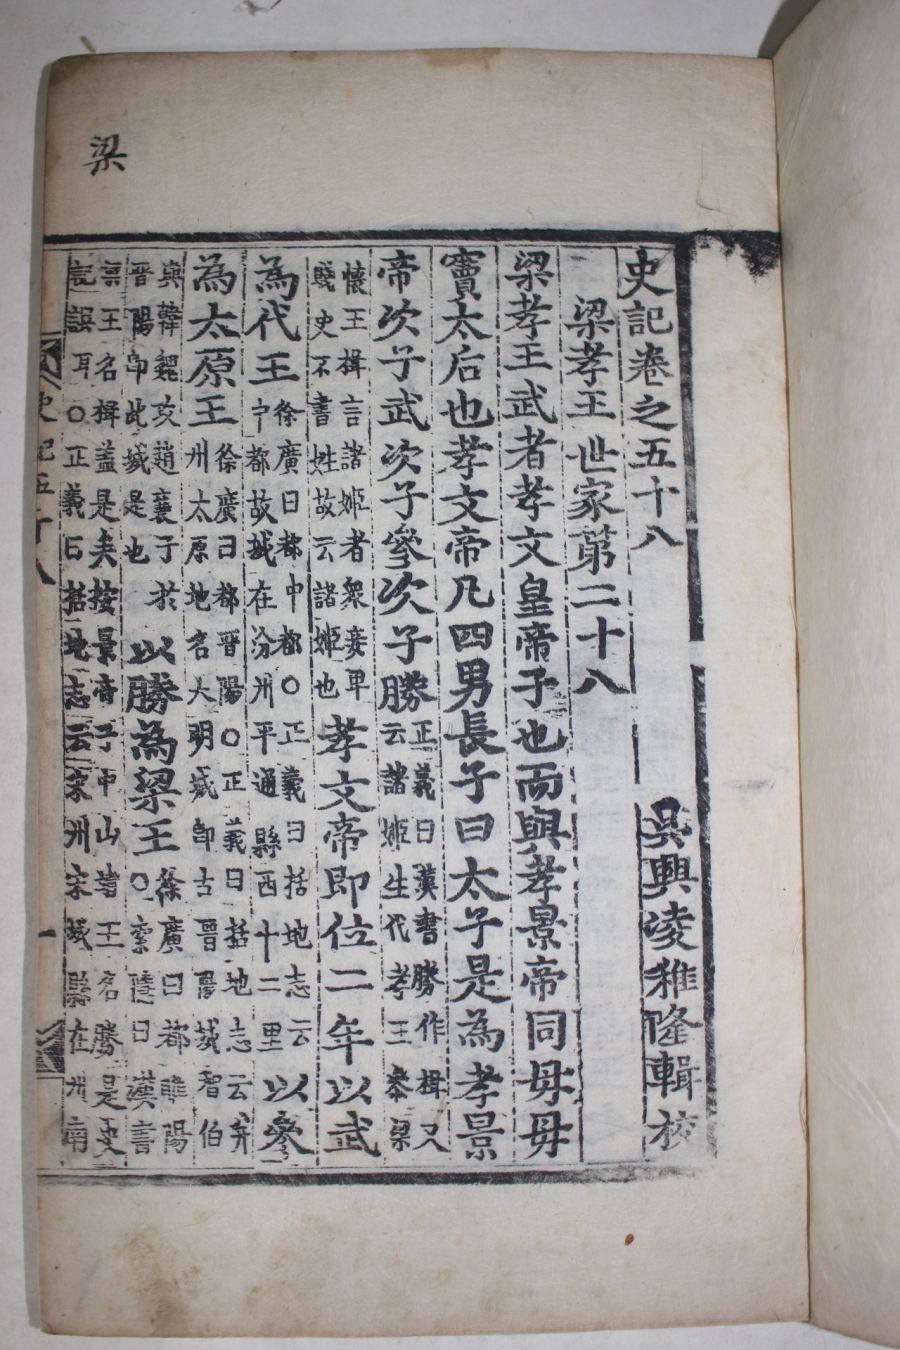 梁
史記卷之五十八
吳興凌稚隆輯校
梁孝王世家第二十八
梁孝王武者孝文皇帝子也而與孝景帝同母母
竇太后也孝文帝凡四男長子曰太子是為孝景
帝次子武次子參次子勝正義曰漢書勝作楫又云諸姬生代孝王參梁
懷王楫言諸姬者衆妾卑賤史不書姓故云諸姬也孝文帝即位二年以武
為代王徐廣曰都中都○正義曰括地志云中都故城在汾州平遥縣西十二里以參
為太原王徐廣曰都晉陽○正義曰括地志云并州太原地名大明城即古晉陽城智伯
與韓魏攻趙襄子於晉陽即此城是也以勝為梁王徐廣曰都睢陽○索隱曰漢書
梁王名楫盖是矣按景帝子中山靖王名勝是史記誤耳○正義曰括地志云宋州宋城縣在州南
史記五十八
一